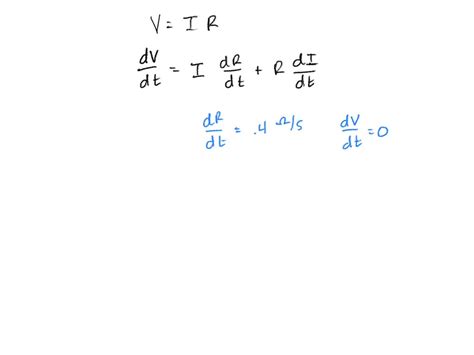 V = I R
dV/dt = I dR/dt + R dI/dt
dR/dt = .4 Ω/s dV/dt = 0